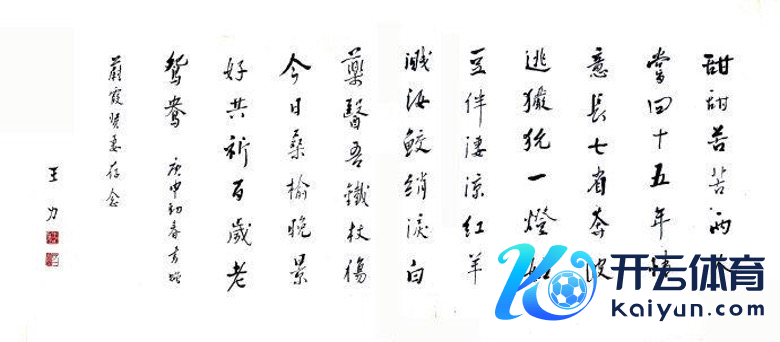 甜甜苦苦兩人
嘗四十五年情
意長七省奔波
逃玁狁一燈如
豆伴淒涼紅羊
濺汝鮫綃淚白
藥醫吾鐵杖傷
今日桑榆晚景
好共祈百歲老
鴛鴦 庚申初春書贈
蔚霞賢妻存念
王力
开云体育
kaiyun.com